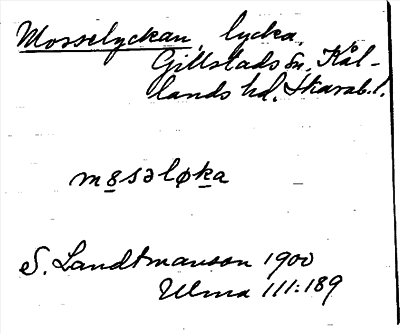 Mosselyckan, lycka,
Gillstads sn, Kål-
lands hd, Skarab.l.
mosəløka
S. Landtmanson 1900
Ulma 111:189